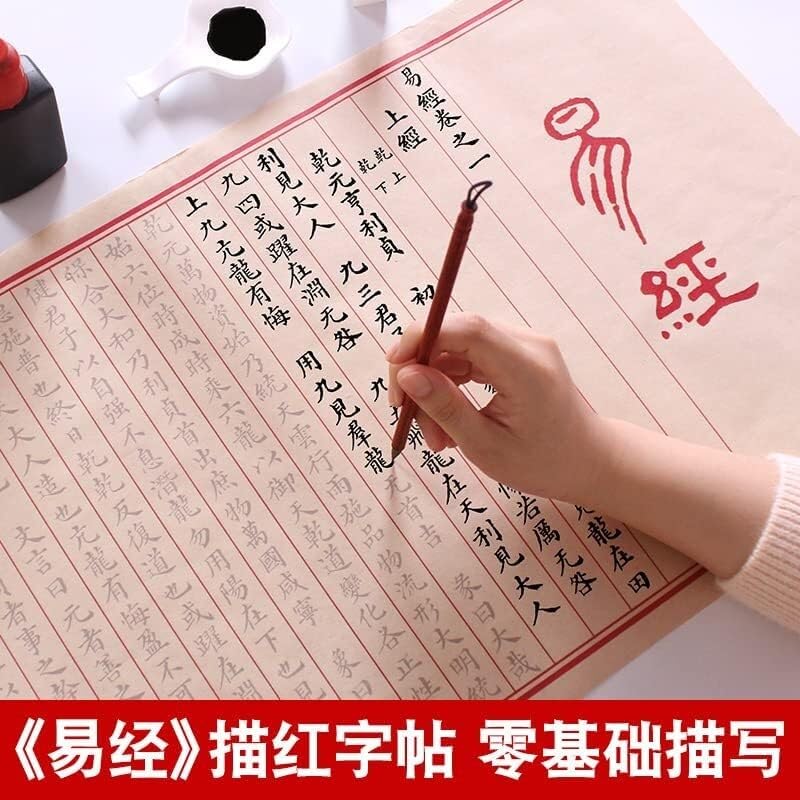 易經
易經卷之一
上經
乾上
乾下
乾元亨利貞 初 見龍在田
利見大人 九三君 惕若厲无咎
九四或躍在淵无咎 九 飛龍在天利見大人
上九亢龍有悔 用九見羣龍无首吉 彖曰大哉
乾元萬物資始乃統天雲行雨施品物流形大明
始六位時成時乘六龍以御天乾道變化各正性
保合大和乃利貞首出庶物萬國咸寧 象曰
健君子以自強不息潛龍勿用陽在下也見
施普也終日乾乾反復道也或躍在淵
大人造也亢龍有悔盈不可
文言曰元者善之
者事之幹
《易经》描红字帖 零基础描写